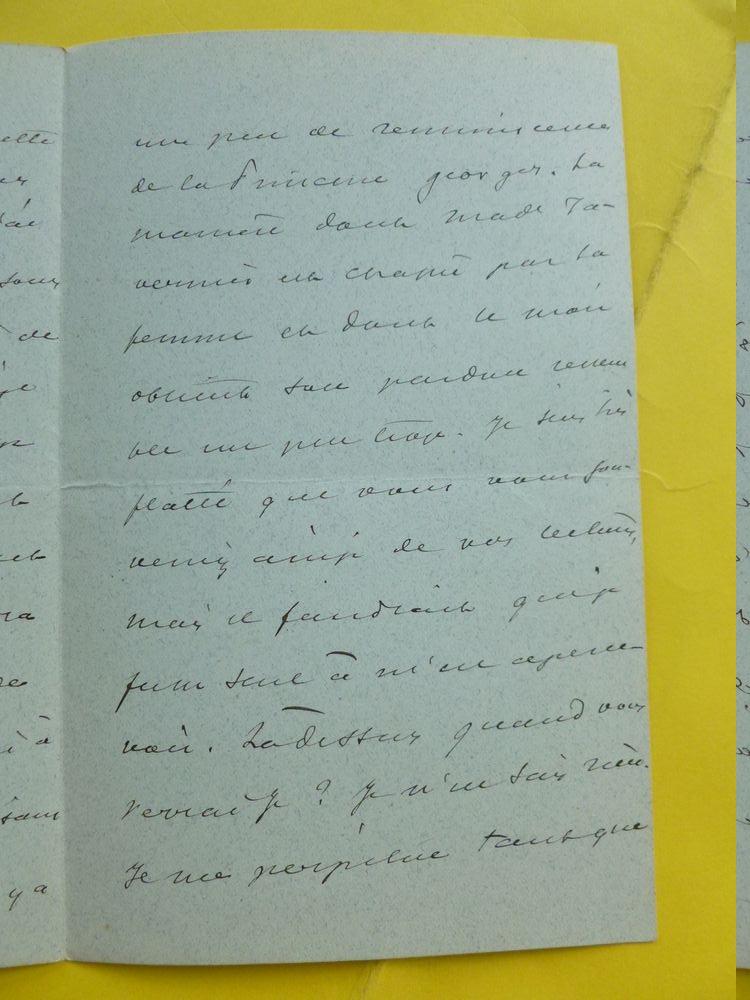 de
y a
un peu de reminiscence
de la Princesse Georges. La
manière dont Made Ta-
vernier est chassée par la
femme et dont le mari
obtient son pardon ressem
ble un peu trop. Je suis très
flatté que vous vous sou-
veniez ainsi de vos lectures,
mais il faudrait que je
fusse seul à m'en aperce-
voir. Là dessus quand vous
verrai je ? Je n'en sais rien.
Je me perpétue tant que